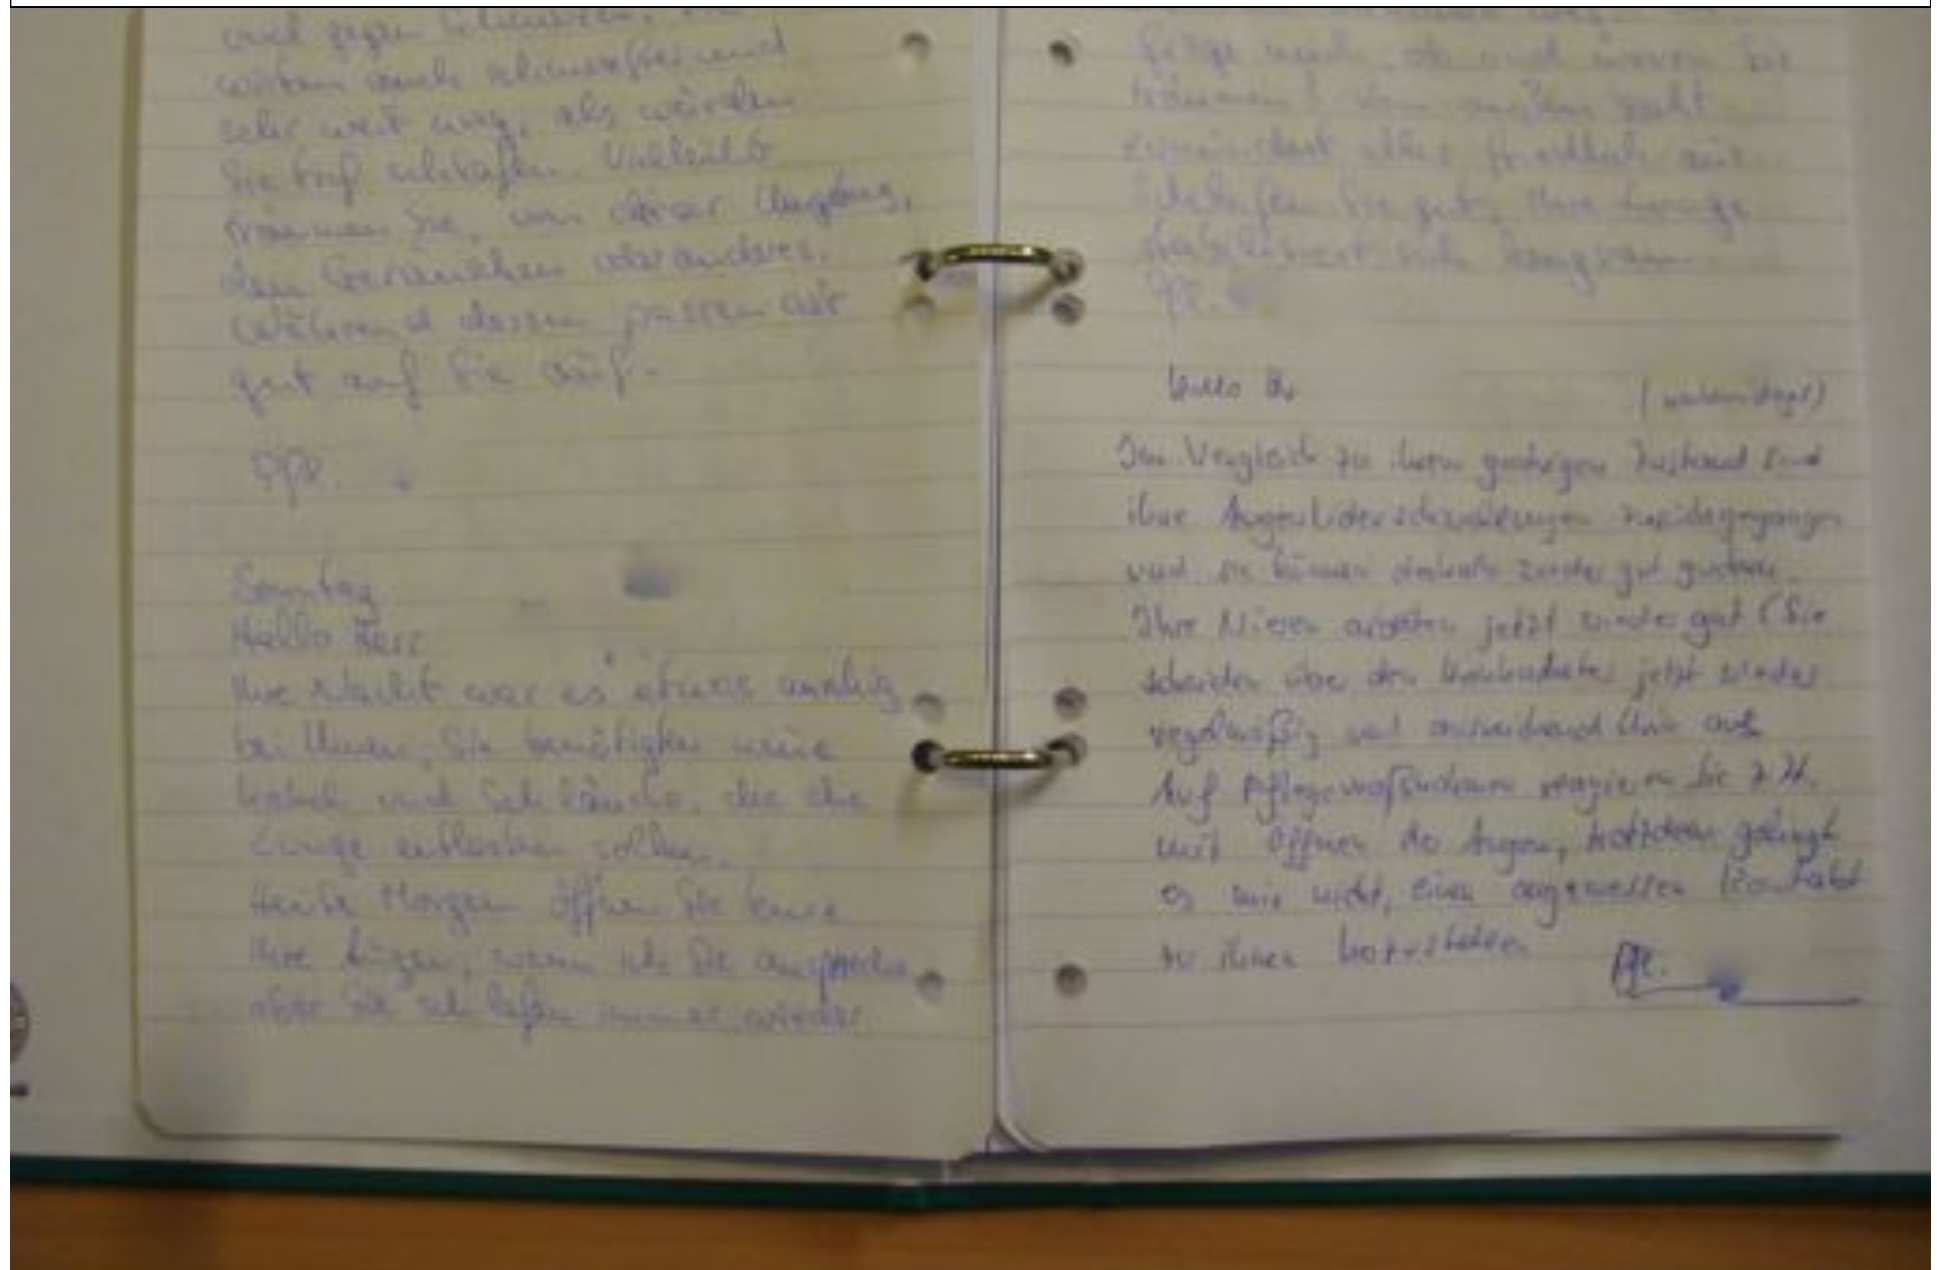 und gegen
wirken auch schmerzfrei und
sehr weit weg, als würden
Sie tief schlafen. Vielleicht
träumen Sie, von dieser Umgebung,
den Geräuschen oder anderes.
Während dessen passen wir
gut auf Sie auf.
Pfl.
Sonntag
Hallo Herr
Ihre Nacht war es etwas unruhig
bei Ihnen, Sie benötigten neue
Kabel und Schläuche, die die
Lunge entlasten sollen.
Heute Morgen öffnen Sie kurz
Ihre Augen, wenn ich Sie anspreche
aber Sie schlafen immer wieder
frage mich, ob und wovon Sie
träumen? Von außen sieht
zumindest alles friedlich aus.
Schlafen Sie gut, Ihre Lunge
stabilisiert sich langsam.
Pfl.
Hallo
Im Vergleich zu ihrem gestrigen Zustand sind
ihre Augenliderschwellungen zurückgegangen
und sie können wieder gut
Ihre Nieren arbeiten jetzt wieder gut (Sie
scheiden über den jetzt wieder
regelmäßig und ausreichend Urin aus
Auf Pflegemaßnahmen reagieren Sie z.Zt.
mit Öffnen der Augen, trotzdem gelingt
es mir nicht, einen angemessen Kontakt
zu ihnen herzustellen
Pfl.